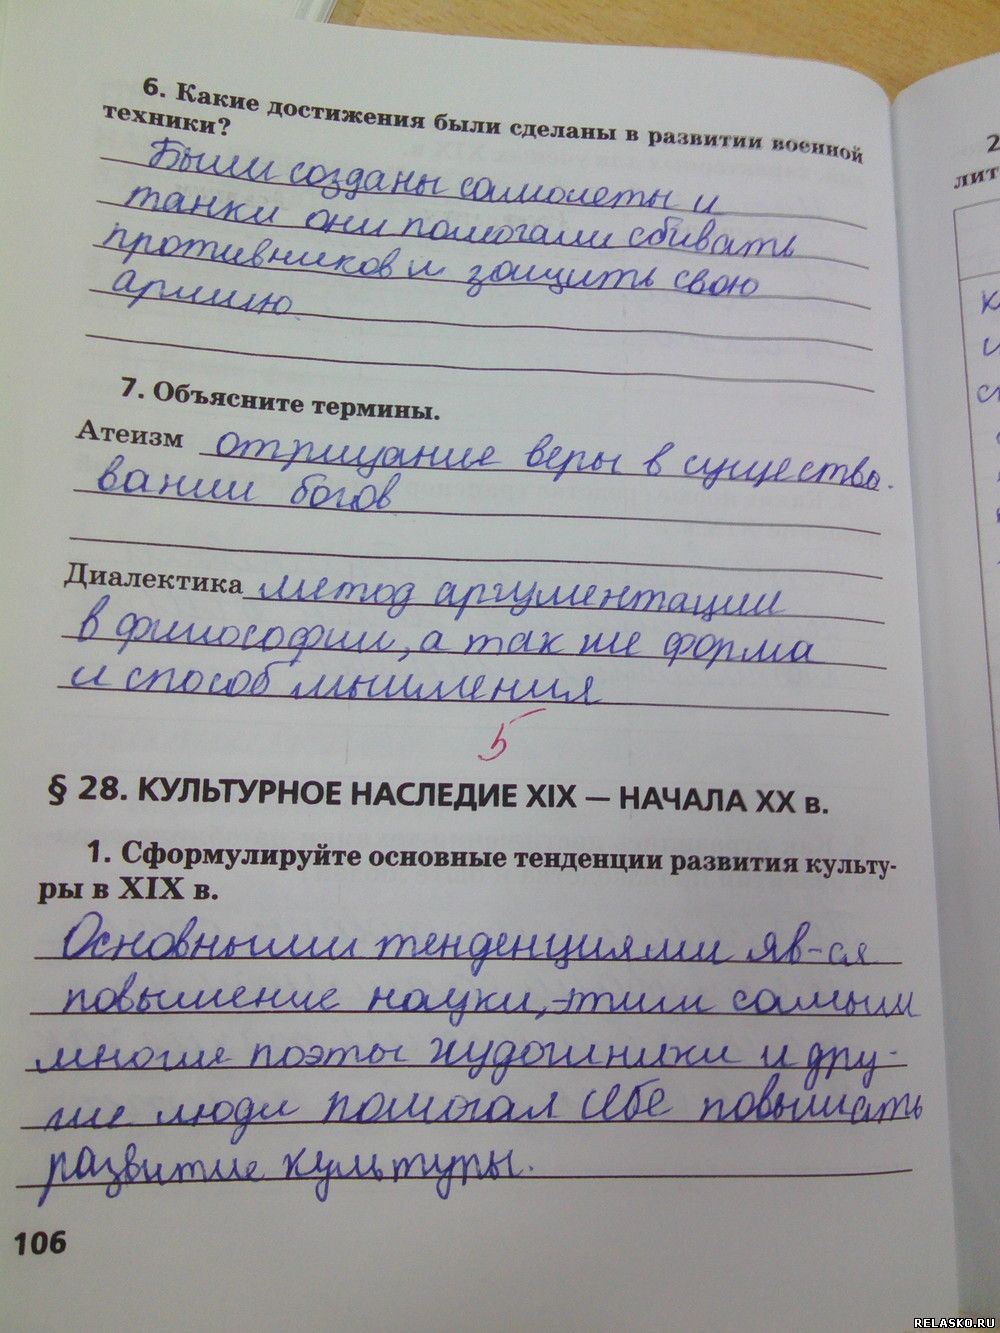 6. Какие достижения были сделаны в развитии военной
техники?
Были созданы самолеты и
танки они помогали сбивать
противников и защить свою
армию.
7. Объясните термины.
Атеизм отрицание веры в существо.
вании богов
Диалектика метод аргументации
в философии, а так же форма
и способ мышления
5
§ 28. КУЛЬТУРНОЕ НАСЛЕДИЕ XIX — НАЧАЛА XX в.
1. Сформулируйте основные тенденции развития культу-
ры в XIX в.
Основными тенденциями яв-ся
повышение науки, -тим самым
многие поэты художники и дру-
гие люди помогал себе повышать
развитие культуры.
106
2
лит
RELASKO.RU